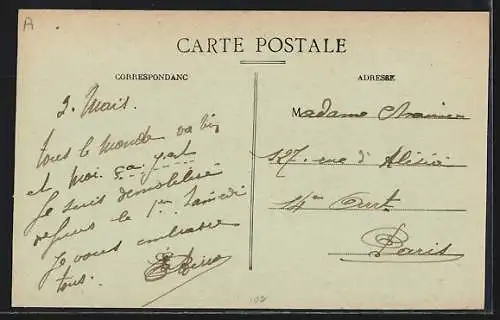 A
CARTE POSTALE
CORRESPONDANC
ADRESSE
2. Mars.
tous le monde va bi
et moi ça y est
Je suis demobilisé
depuis le 1er Samedi
Je vous embrasse
tous.
Madame
127. rue d'Alésia
14em Arrt.
Paris
102